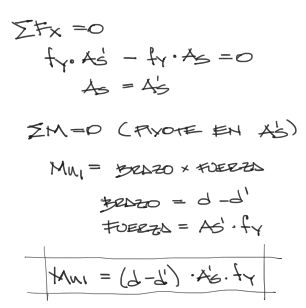 ΣFx =0
fy· As' - fy·As =0
As = As'
ΣM=0 (PIVOTE EN As')
Mu1 = BRAZO x FUERZA
BRAZO = d - d'
FUERZA = As'·fy
Mu1 = (d-d')·As'·fy